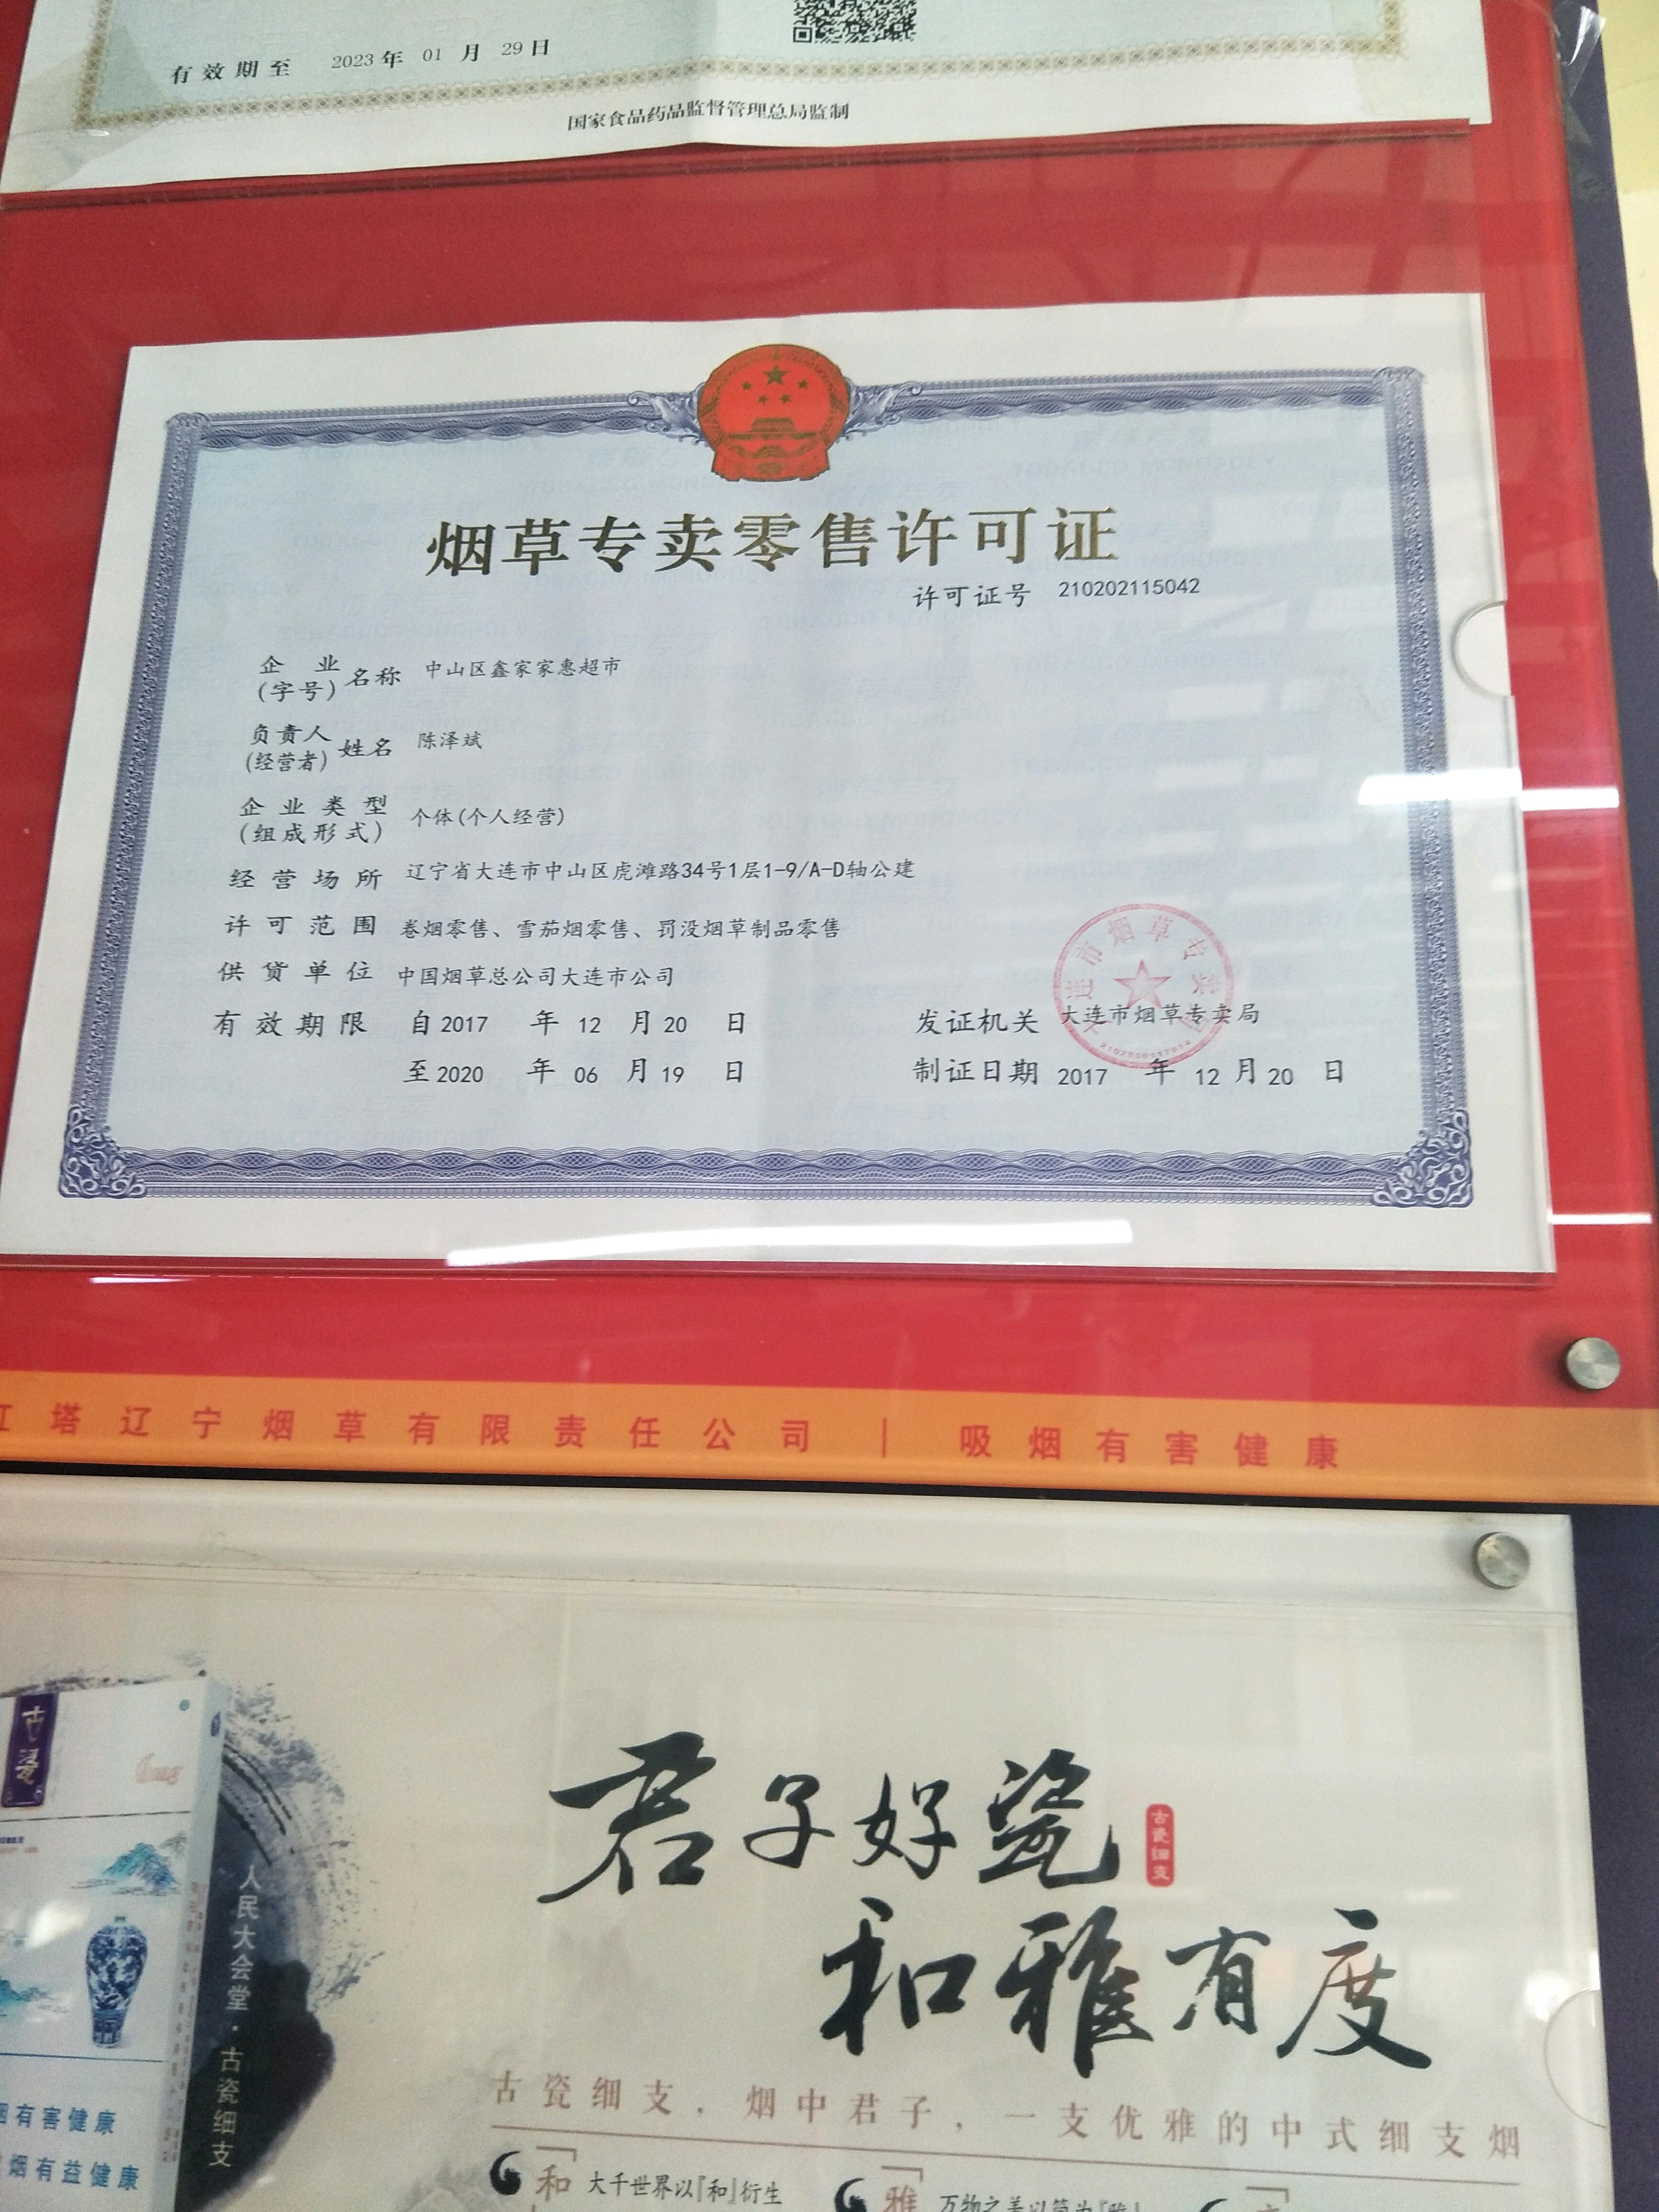 有效期至 2023年 01 月 29日
国家食品药品监督管理总局监制
烟草专卖零售许可证
许可证号 210202115042
企业(字号)名称 中山区鑫家家惠超市
负责人(经营者)姓名 陈泽斌
企业类型(组成形式) 个体(个人经营)
经营场所 辽宁省大连市中山区虎滩路34号1层1-9/A-D轴公建
许可范围 卷烟零售、雪茄烟零售、罚没烟草制品零售
供货单位 中国烟草总公司大连市公司
有效期限 自2017 年 12 月20 日
至2020 年 06 月19 日
发证机关 大连市烟草专卖局
制证日期 2017 年 12月20 日
塔辽宁烟草有限责任公司 | 吸烟有害健康
古瓷
君子好瓷
古瓷细支
和雅有度
人民大会堂·古瓷细支
古瓷细支,烟中君子,一支优雅的中式细支烟
有害健康
烟有益健康
「和 大千世界以『和』衍生
「雅